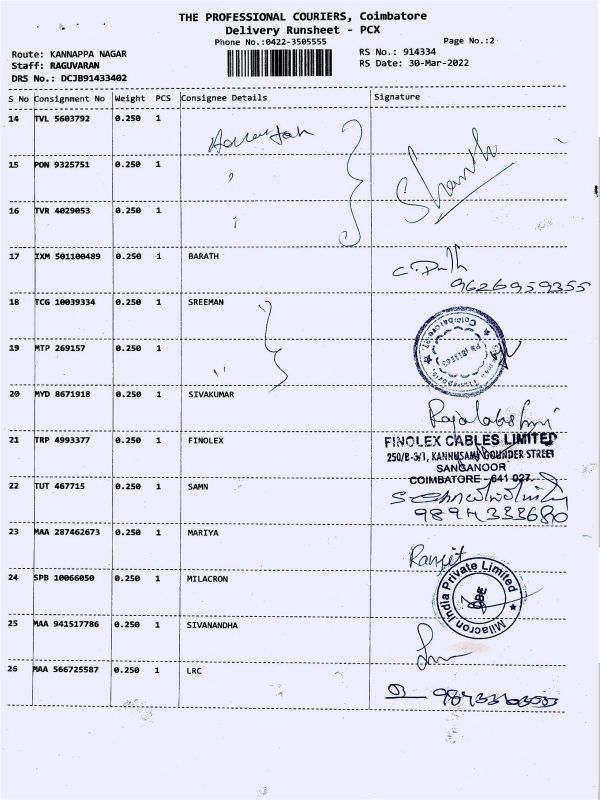 THE PROFESSIONAL COURIERS, Coimbatore
Delivery Runsheet - PCX
Phone No.:0422-3505555
Page No.:2
Route: KANNAPPA NAGAR
RS No.: 914334
Staff: RAGUVARAN
RS Date: 30-Mar-2022
DRS No.: DCJB91433402
S No Consignment No Weight PCS Consignee Details Signature
14 TVL 5603792 0.250 1
15 PON 9325751 0.250 1
Shanth
16 TVR 4029053 0.250 1
17 IXM 501100489 0.250 1 BARATH
9626959355
18 TCG 10039334 0.250 1 SREEMAN
19 MTP 269157 0.250 1
20 MYD 8671918 0.250 1 SIVAKUMAR
Rajalakshmi
21 TRP 4993377 0.250 1 FINOLEX
FINOLEX CABLES LIMITED
250/B-3/1, KANNUSAMY GOUNDER STREET
SANGANOOR
COIMBATORE - 641 027.
22 TUT 467715 0.250 1 SAMN
9894333680
23 MAA 287462673 0.250 1 MARIYA
Ranjit
24 SPB 10066050 0.250 1 MILACRON
Milacron India Private Limited
CBE
25 MAA 941517786 0.250 1 SIVANANDHA
26 MAA 566725587 0.250 1 LRC